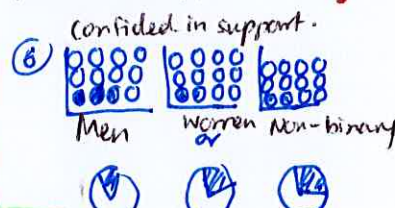 confided in support.
6
Men women Non-binary
or